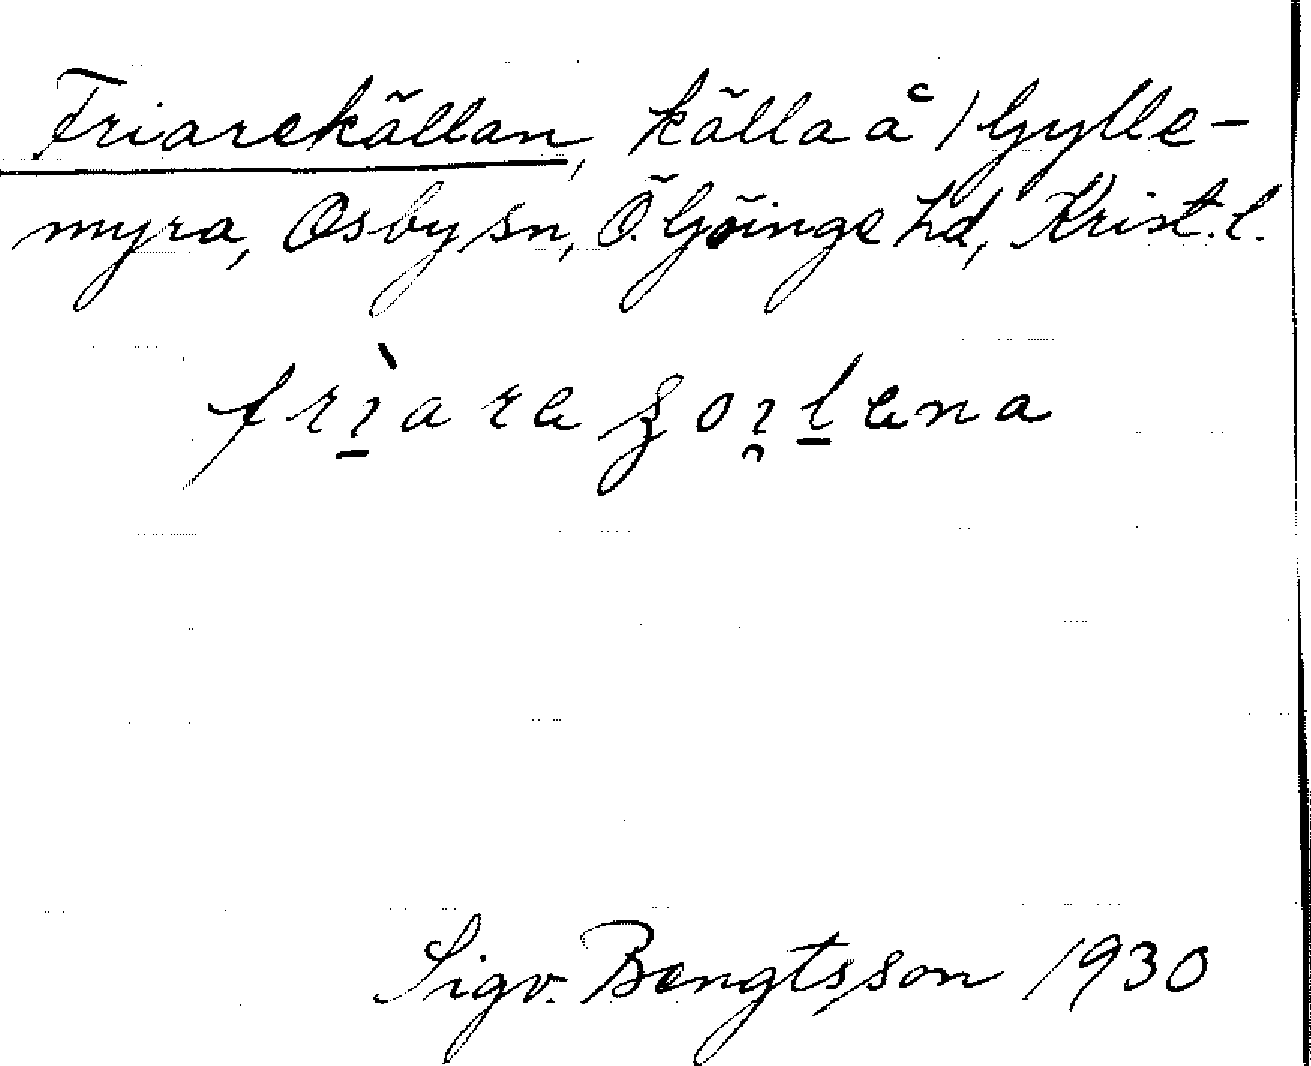 Friarekällan, källa å 1 Gylle-
myra, Osby sn, Ö. Göinge hd, Krist. l.
Sigv. Bengtsson 1930